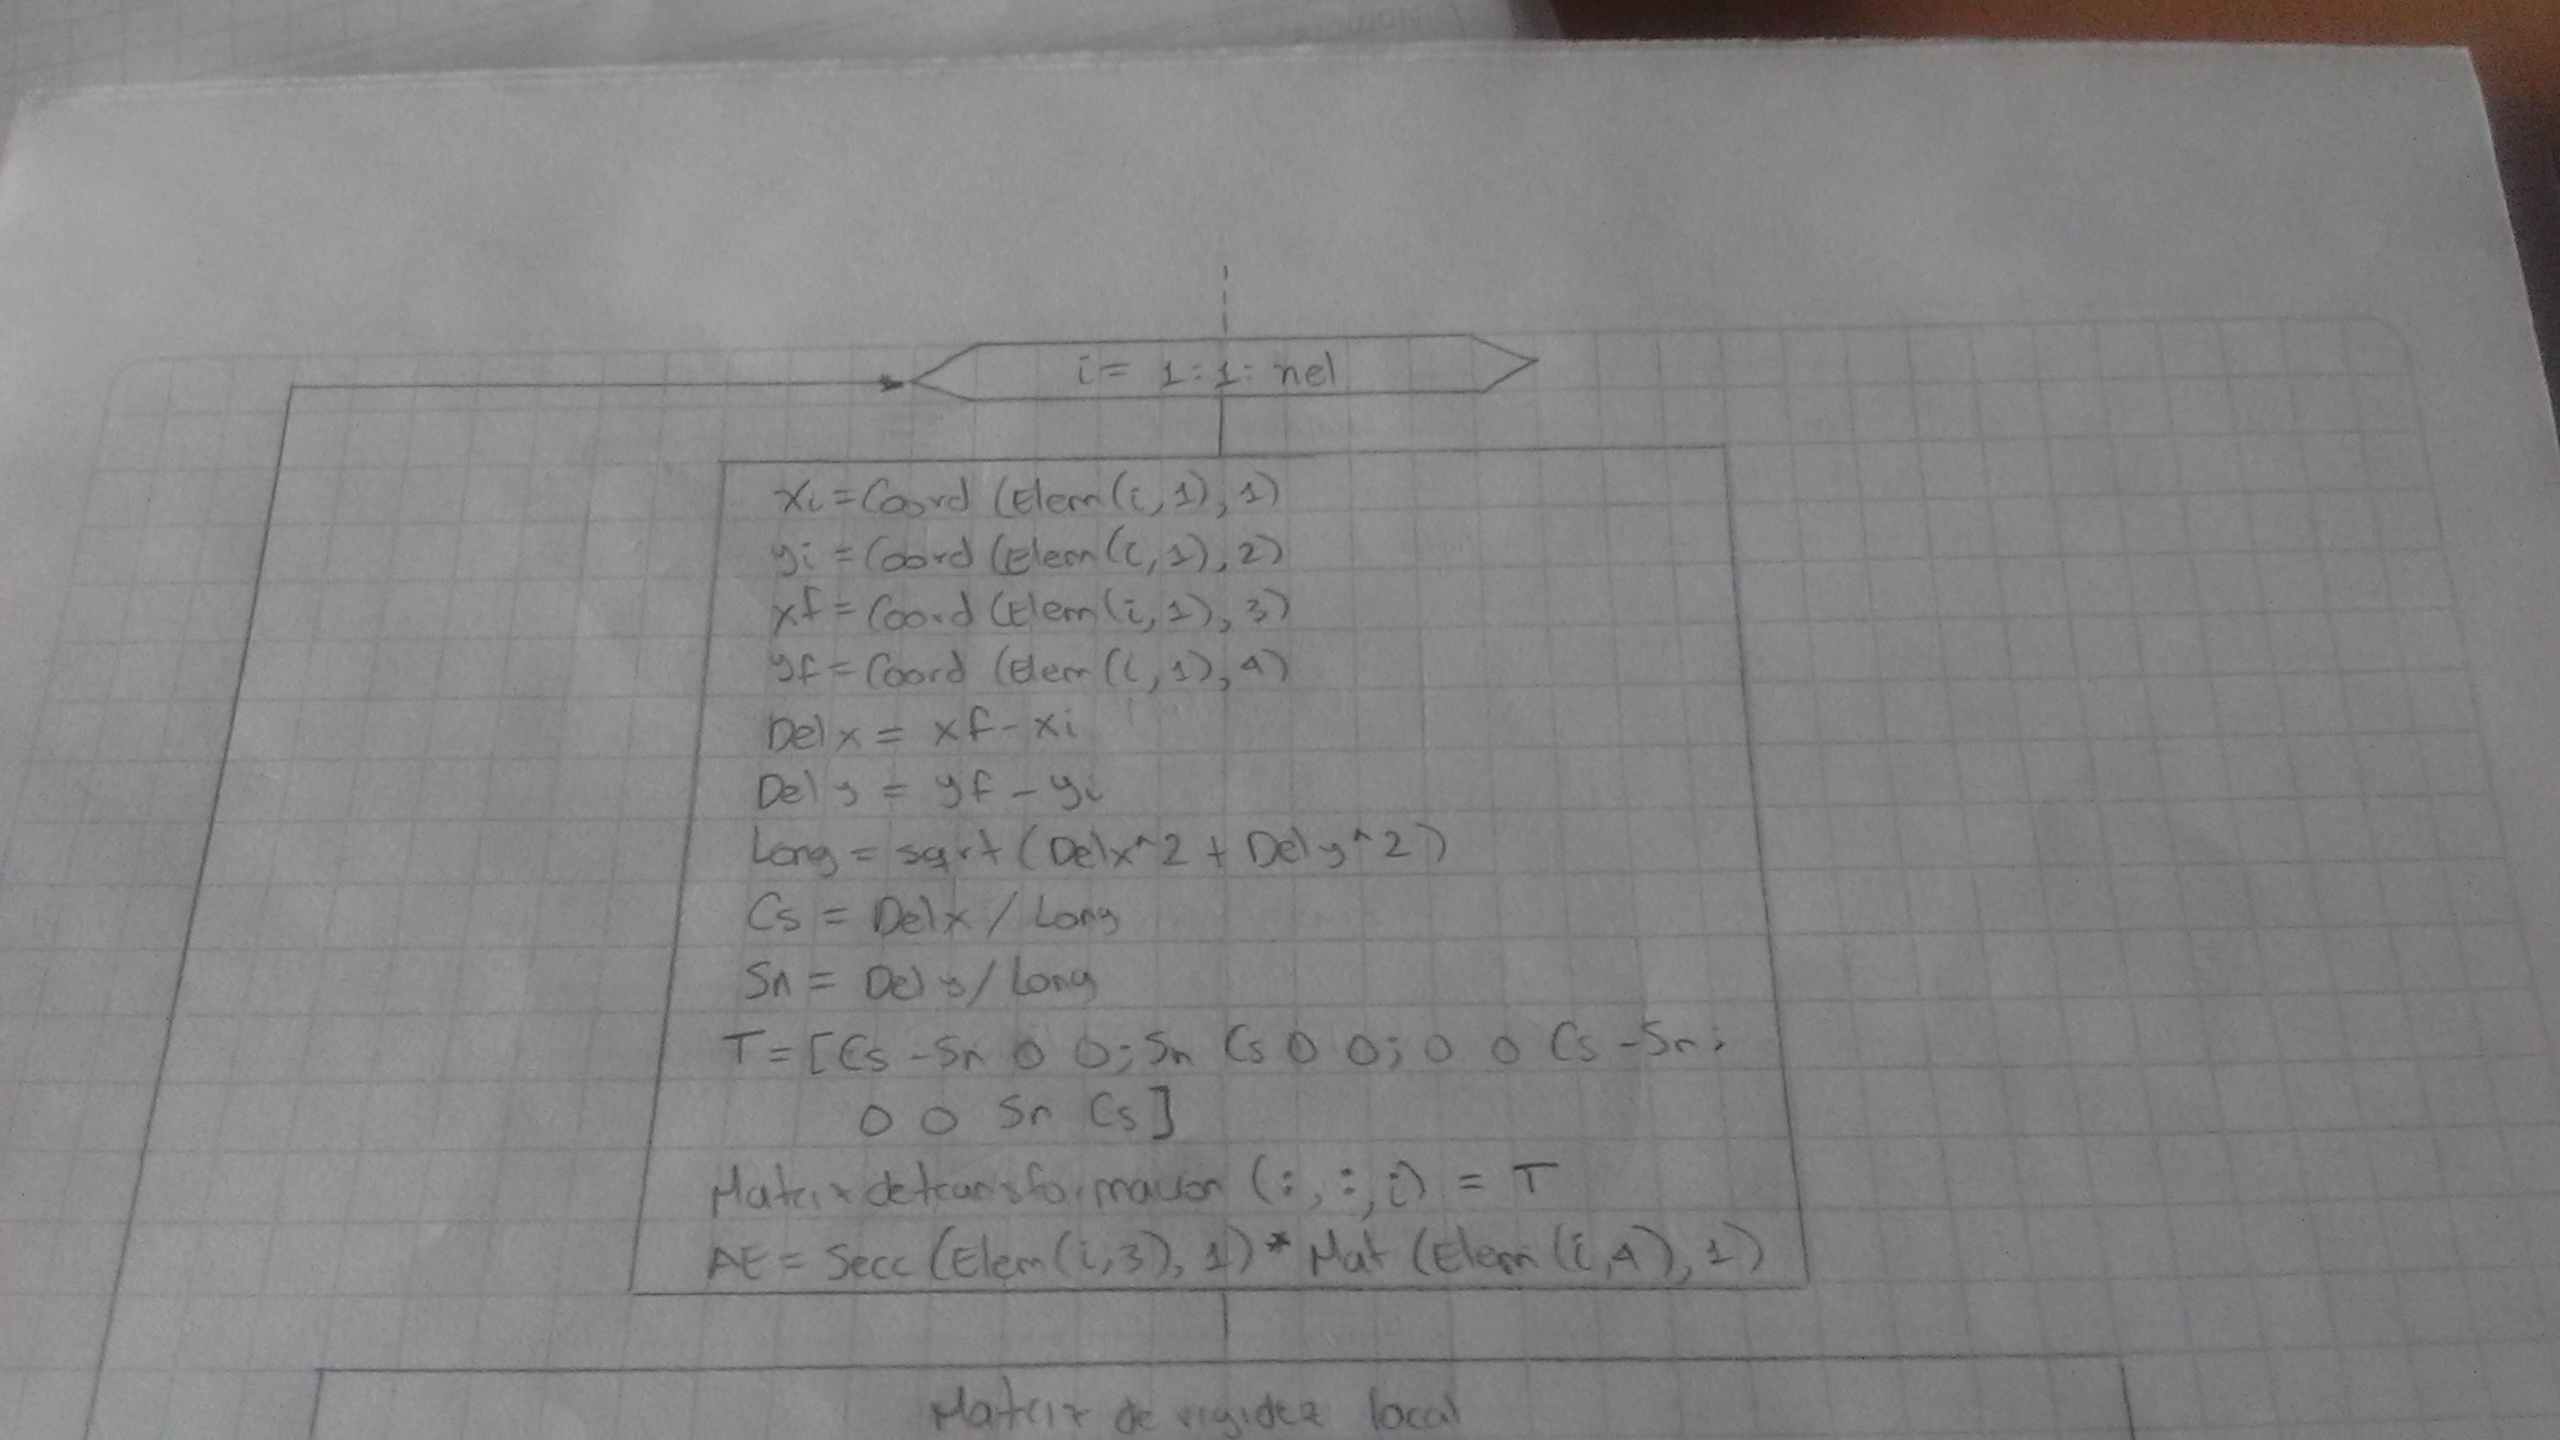 i= 1:1: nel
xi=Coord (Elem(i,1),1)
yi=Coord (Elem(i,1),2)
xf=Coord (Elem(i,1),3)
yf=Coord (Elem(i,1),4)
Delx= xf-xi
Dely = yf-yi
Long=sqrt(Delx^2+Dely^2)
Cs = Delx/Long
Sn= Dely/Long
T=[Cs -Sn 0 0;Sn Cs 0 0;0 0 Cs -Sn;
0 0 Sn Cs]
Matrizdetransformacion (:,:,i) = T
AE=Secc(Elem(i,3),1)*Mat(Elem(i,4),1)
Matriz de rigidez local